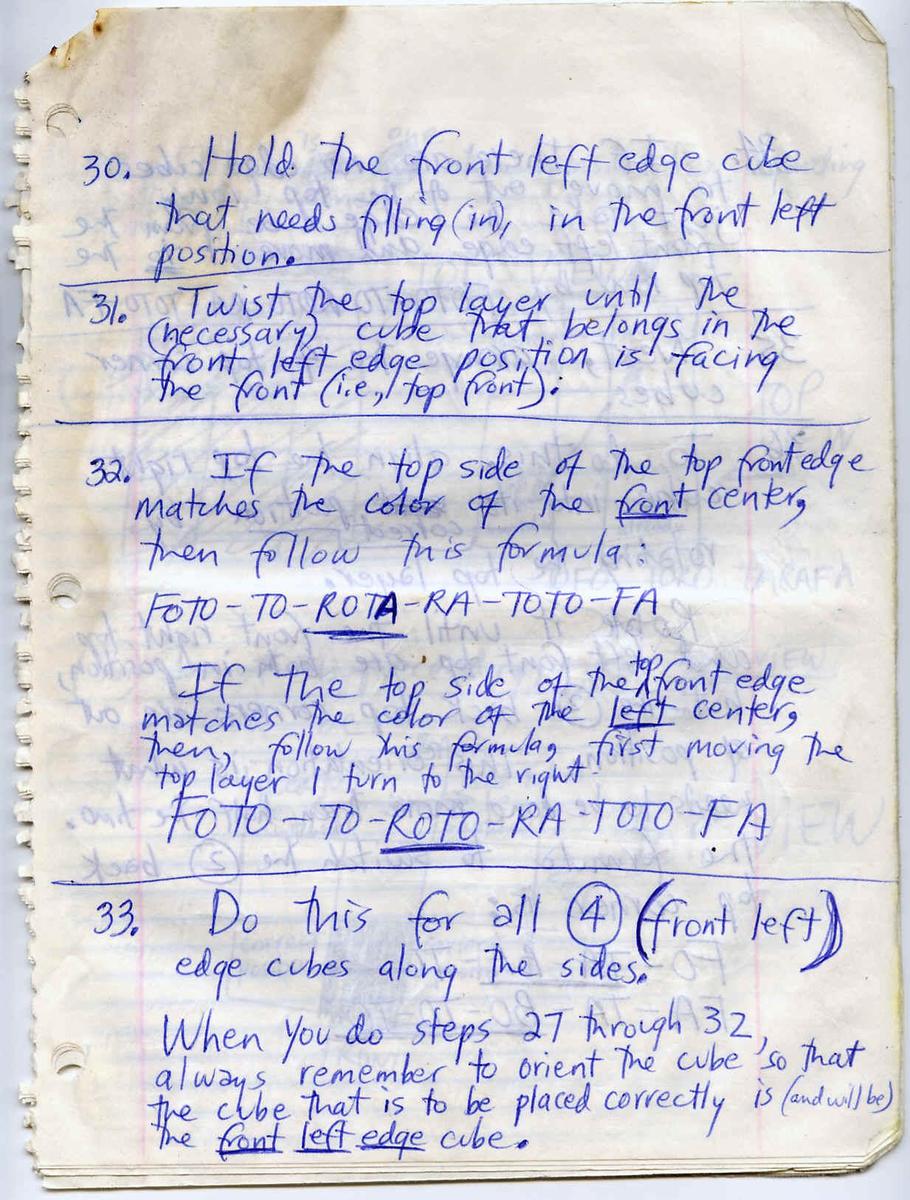 30. Hold the front left edge cube
that needs filling (in), in the front left
position.
31. Twist the top layer until the
(necessary) cube that belongs in the
front left edge position is facing
the front (i.e., top front):
32. If the top side of the top front edge
matches the color of the front center,
then follow this formula:
FOTO-TO-ROTA-RA-TOTO-FA
If the top side of the top front edge
matches the color of the left center,
then, follow this formula, first moving the
top layer 1 turn to the right.
FOTO-TO-ROTO-RA-TOTO-FA
33. Do this for all 4 (front left)
edge cubes along the sides.
When you do steps 27 through 32,
always remember to orient the cube, so that
the cube that is to be placed correctly is (and will be)
the front left edge cube.